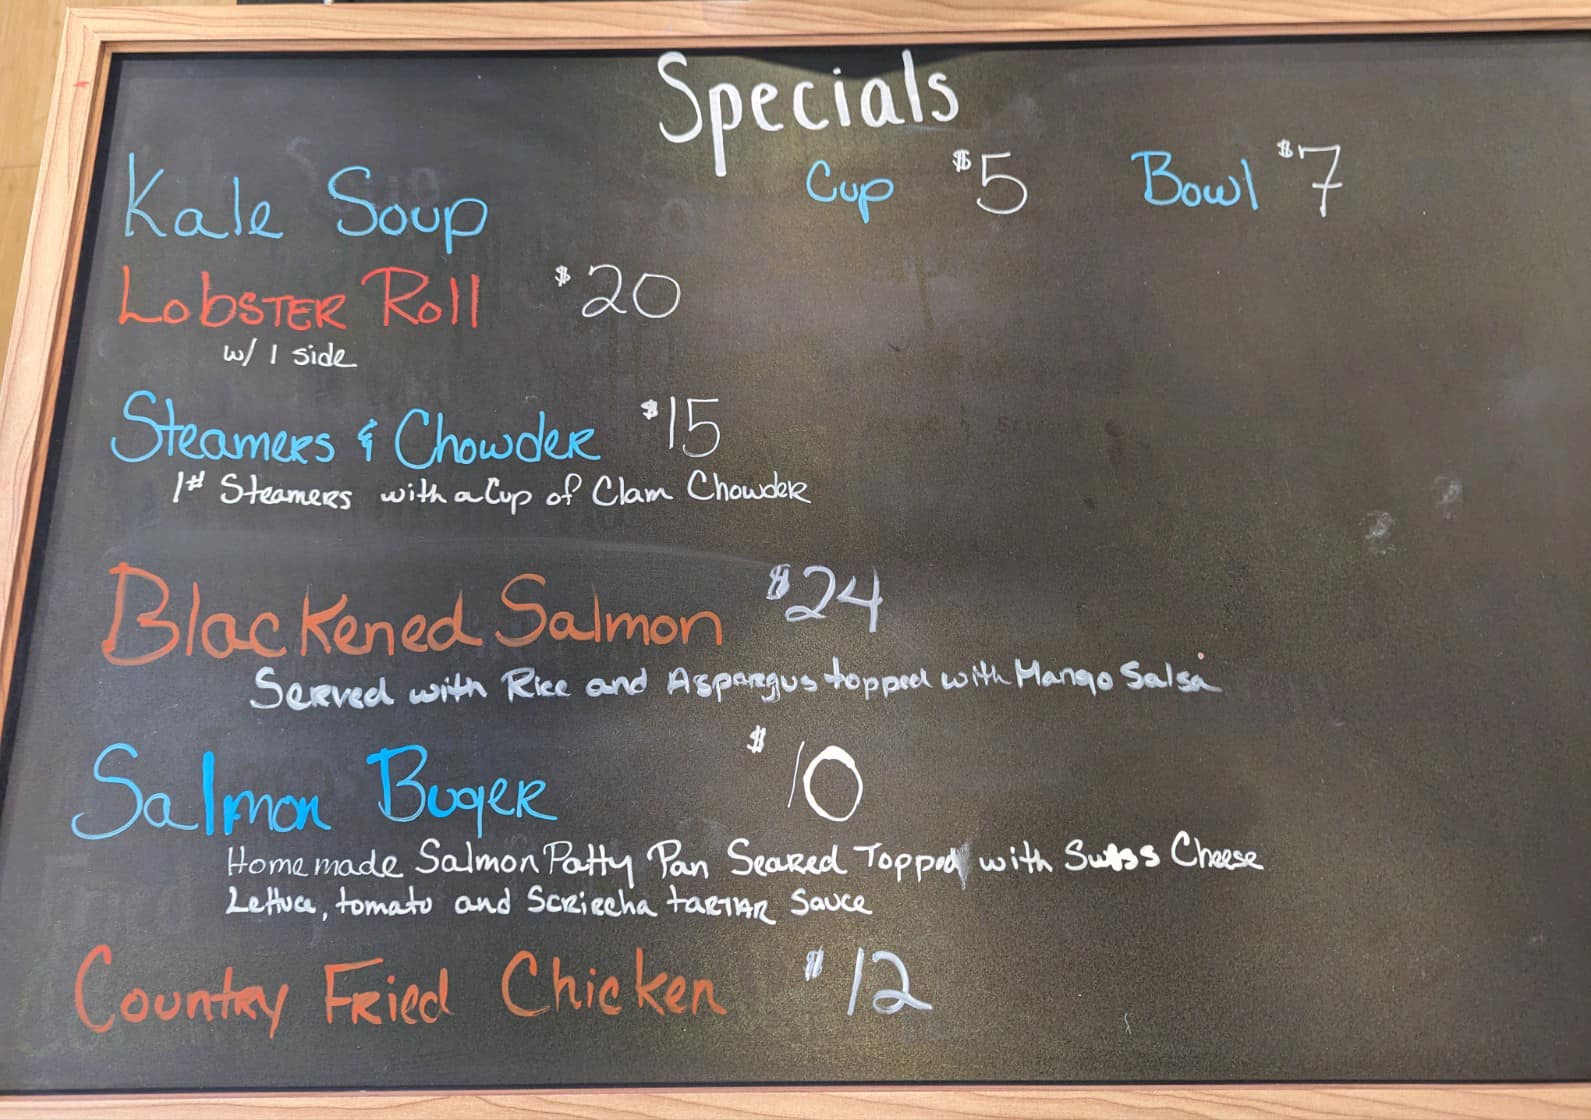 Specials
Kale Soup Cup $5 Bowl $7
LobSTER Roll $20
w/ 1 side
SteamERs & ChowdER $15
1# SteamERs with a Cup of Clam ChowdER
Blackened Salmon $24
SERved with Rice and Asparagus topped with Mango Salsa
Salmon BugER $10
Homemade Salmon Patty Pan SeaRed Topped with Swiss Cheese
Lettuce, tomato and ScRiRcha taRTAR Sauce
CountRy FRied Chicken $12